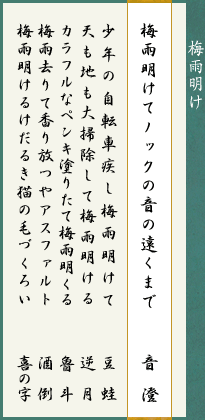 梅雨明け
梅雨明けてノックの音の遠くまで 音澄
少年の自転車疾し梅雨明けて 豆蛙
天も地も大掃除して梅雨明ける 逆月
カラフルなペンキ塗りたて梅雨明くる 魯斗
梅雨去りて香り放つやアスファルト 酒倒
梅雨明けるけだるき猫の毛づくろい 喜の字